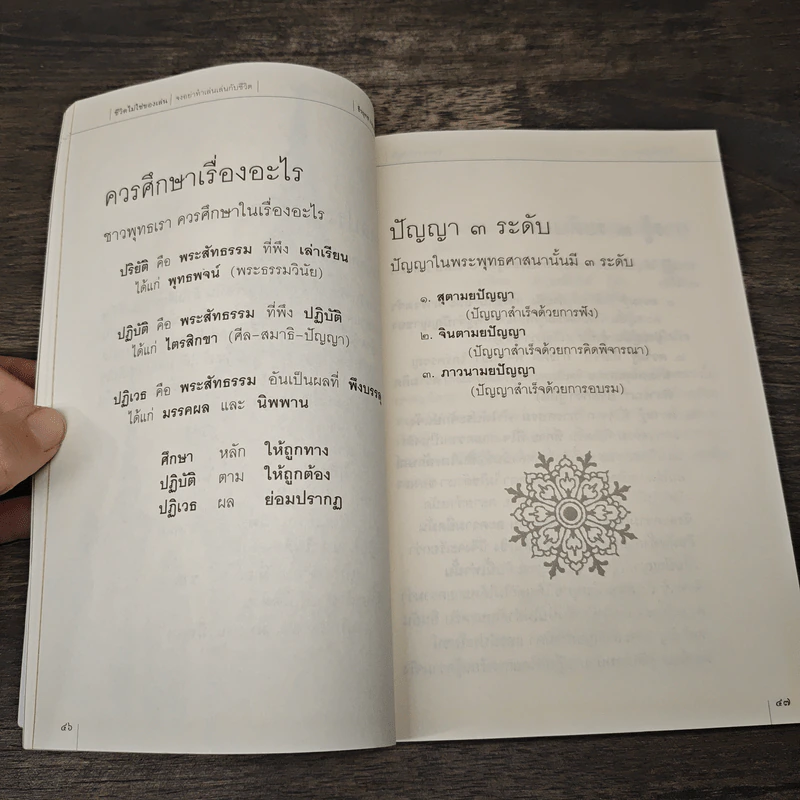 ชีวิตไม่ใช่ของเล่น | จงอย่าทำเล่นเล่นกับชีวิต
ควรศึกษาเรื่องอะไร
ชาวพุทธเรา ควรศึกษาในเรื่องอะไร
ปริยัติ คือ พระสัทธรรม ที่พึง เล่าเรียน
ได้แก่ พุทธพจน์ (พระธรรมวินัย)
ปฏิบัติ คือ พระสัทธรรม ที่พึง ปฏิบัติ
ได้แก่ ไตรสิกขา (ศีล-สมาธิ-ปัญญา)
ปฏิเวธ คือ พระสัทธรรม อันเป็นผลที่ พึงบรรลุ
ได้แก่ มรรคผล และ นิพพาน
ศึกษา หลัก ให้ถูกทาง
ปฏิบัติ ตาม ให้ถูกต้อง
ปฏิเวธ ผล ย่อมปรากฏ
๔๖
ปัญญา ๓ ระดับ
ปัญญาในพระพุทธศาสนานั้นมี ๓ ระดับ
๑. สุตามยปัญญา
(ปัญญาสำเร็จด้วยการฟัง)
๒. จินตามยปัญญา
(ปัญญาสำเร็จด้วยการคิดพิจารณา)
๓. ภาวนามยปัญญา
(ปัญญาสำเร็จด้วยการอบรม)
๔๗